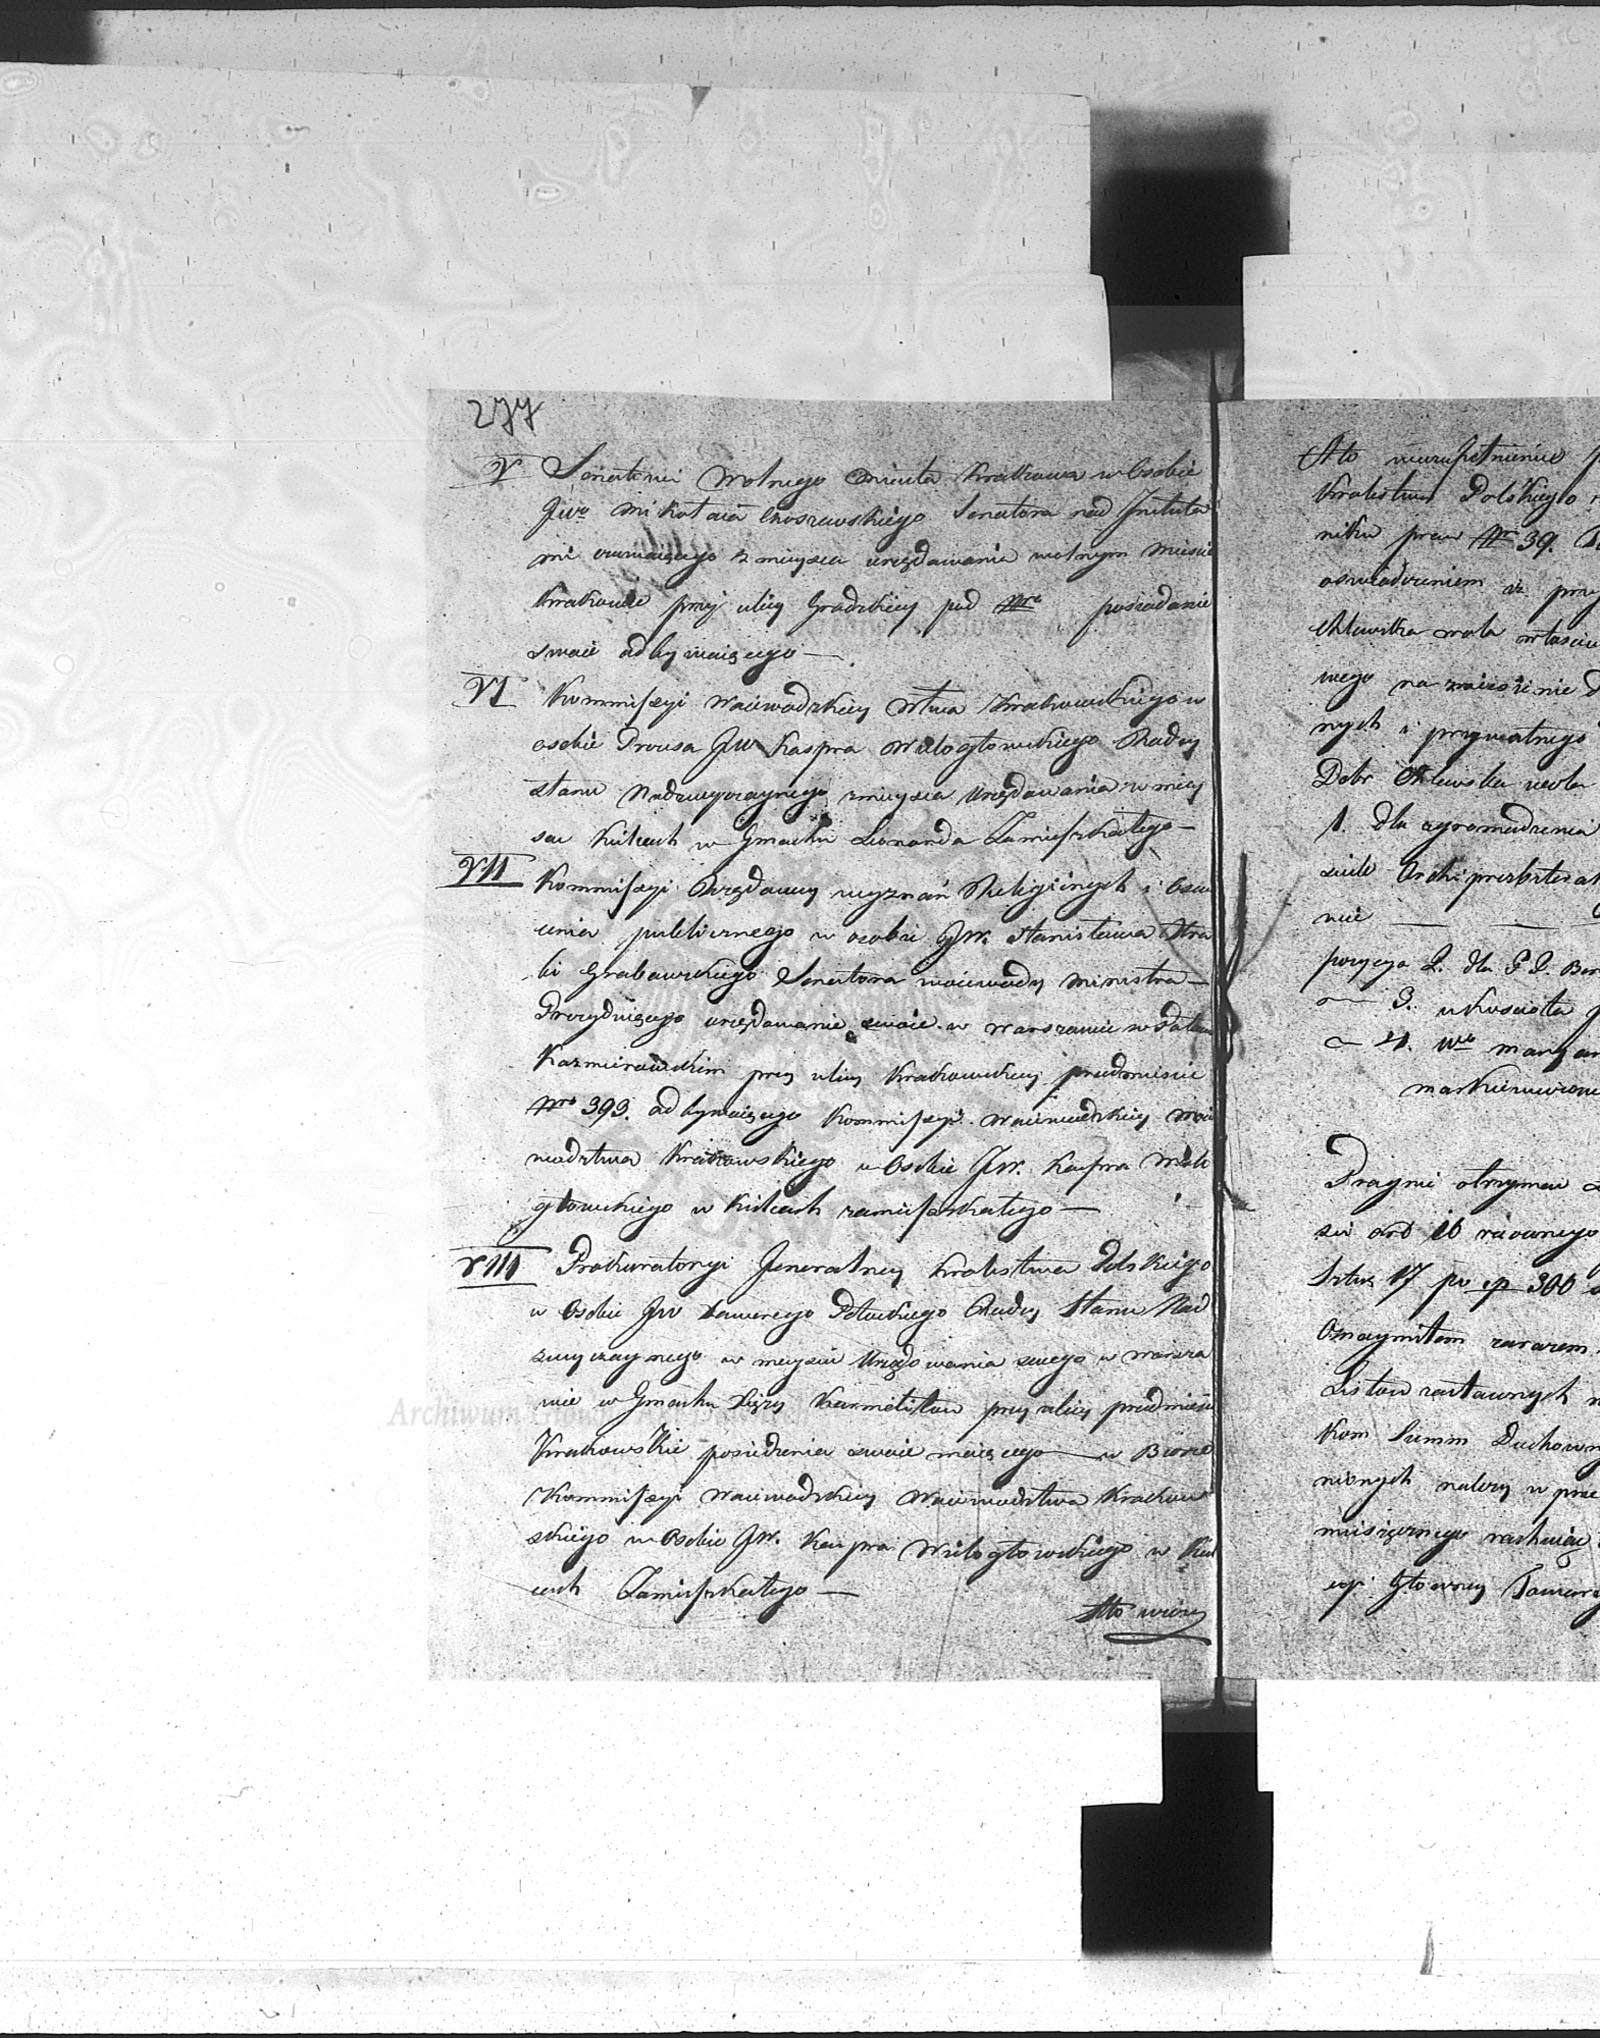 277
V Senatowi Wolnego Miasta Krakowa w Osobie
JWo Mikołaia Senatora nad Instituta
mi czuwaiącego z mieysca urzędowania wolnym Mieście
Krakowie przy ulicy Grodzkiey pod Nro posiedzenie
swoie odbywaiącego —
VI Kommissyi Woiewodzkiey Wtwa Krakowskiego w
osobie Prezesa JW Kaspra Wielogłowskiego Radcy
stanu Nadzwyczaynego z mieysca Urzędowania w miey
scu Kielcach w Gmachu Leonarda Zamieszkałego —
VII Kommissyi Rządowey wyznań Religiinych i Oświe
cenia publicznego w osobie JW. Stanisława Hra
bi Grabowskiego Senatora woiewody Ministra —
Prezyduiącego urzędowanie swoie w Warszawie w Pałacu
Kazmirowskim przy ulicy Krakowskiey przedmieście
Nro 393. odbywaiącego Kommissyi Woiewodzkiey Woie
wodztwa Krakowskiego w Osobie JW. Kaspra Wielo
głowskiego w Kielcach zamieszkałego —
VIII Prokuratoryi Jeneralney Krolestwa Polskiego
w Osobie JW Xawerego Potockiego Radcy Stanu Nad
zwyczaynego w mieyscu Urzędowania swego w Warsza
wie w Gmachu Xięży Karmelitow przy ulicy przedmieści
Krakowskie posiedzenia swoie maiącego — w Biorze
Kommissyi Woiewodzkiey Woiewodztwa Krakow
skiego w Osobie JW. Kaspra Wielogłowskiego w Kiel
cach Zamieszkałego —
A to
A to w uzupełnieniu
Krolestwa Polskiego
niku praw Nr 39.
oswiadczeniem że przy
Chlewska wola własciw
wego na zniesienie
nych i prywatnego
Dobr Chlewska wola
1. dla zgromadzenia
Archiprezbitera
nie — — —
pozycya 2. dla
— 3. u Kościoła
— 4. Wo
Pragnie otrzymać
się od 16
306
Oznaymiłem zarazem
Listow zastawnych
kom Summ Duchown
nionych należy w prze
miesięcznego rachuiąc
cyi Głowney Towarz